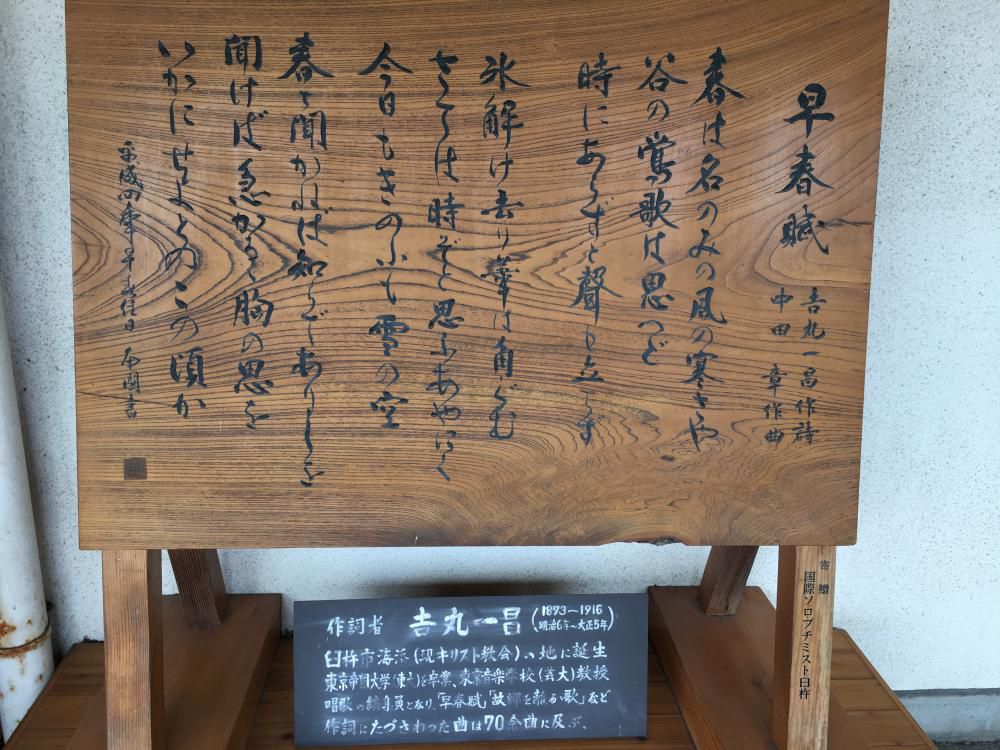 早春賦
吉丸一昌作詩
中田 章作曲
春は名のみの風の寒さや
谷の鶯歌は思へど
時にあらずと聲も立てず
氷解け去り葦は角ぐむ
さては時ぞと思ふあやにく
今日もきのふも雪の空
春と聞かねば知らでありしを
聞けば急かるゝ胸の思を
いかにせよとのこの頃か
平成四年早春佳日
書
寄贈
国際ソロプチミスト臼杵
作詞者 吉丸一昌 (1873〜1916
明治6年〜大正5年)
臼杵市海添(現キリスト教会)の地に誕生
東京帝国大学(東大)を卒業、東京音楽学校(芸大)教授
唱歌の編集員となり、「早春賦」「故郷を離るゝ歌」など
作詞にたづさわった曲は70余曲に及ぶ。